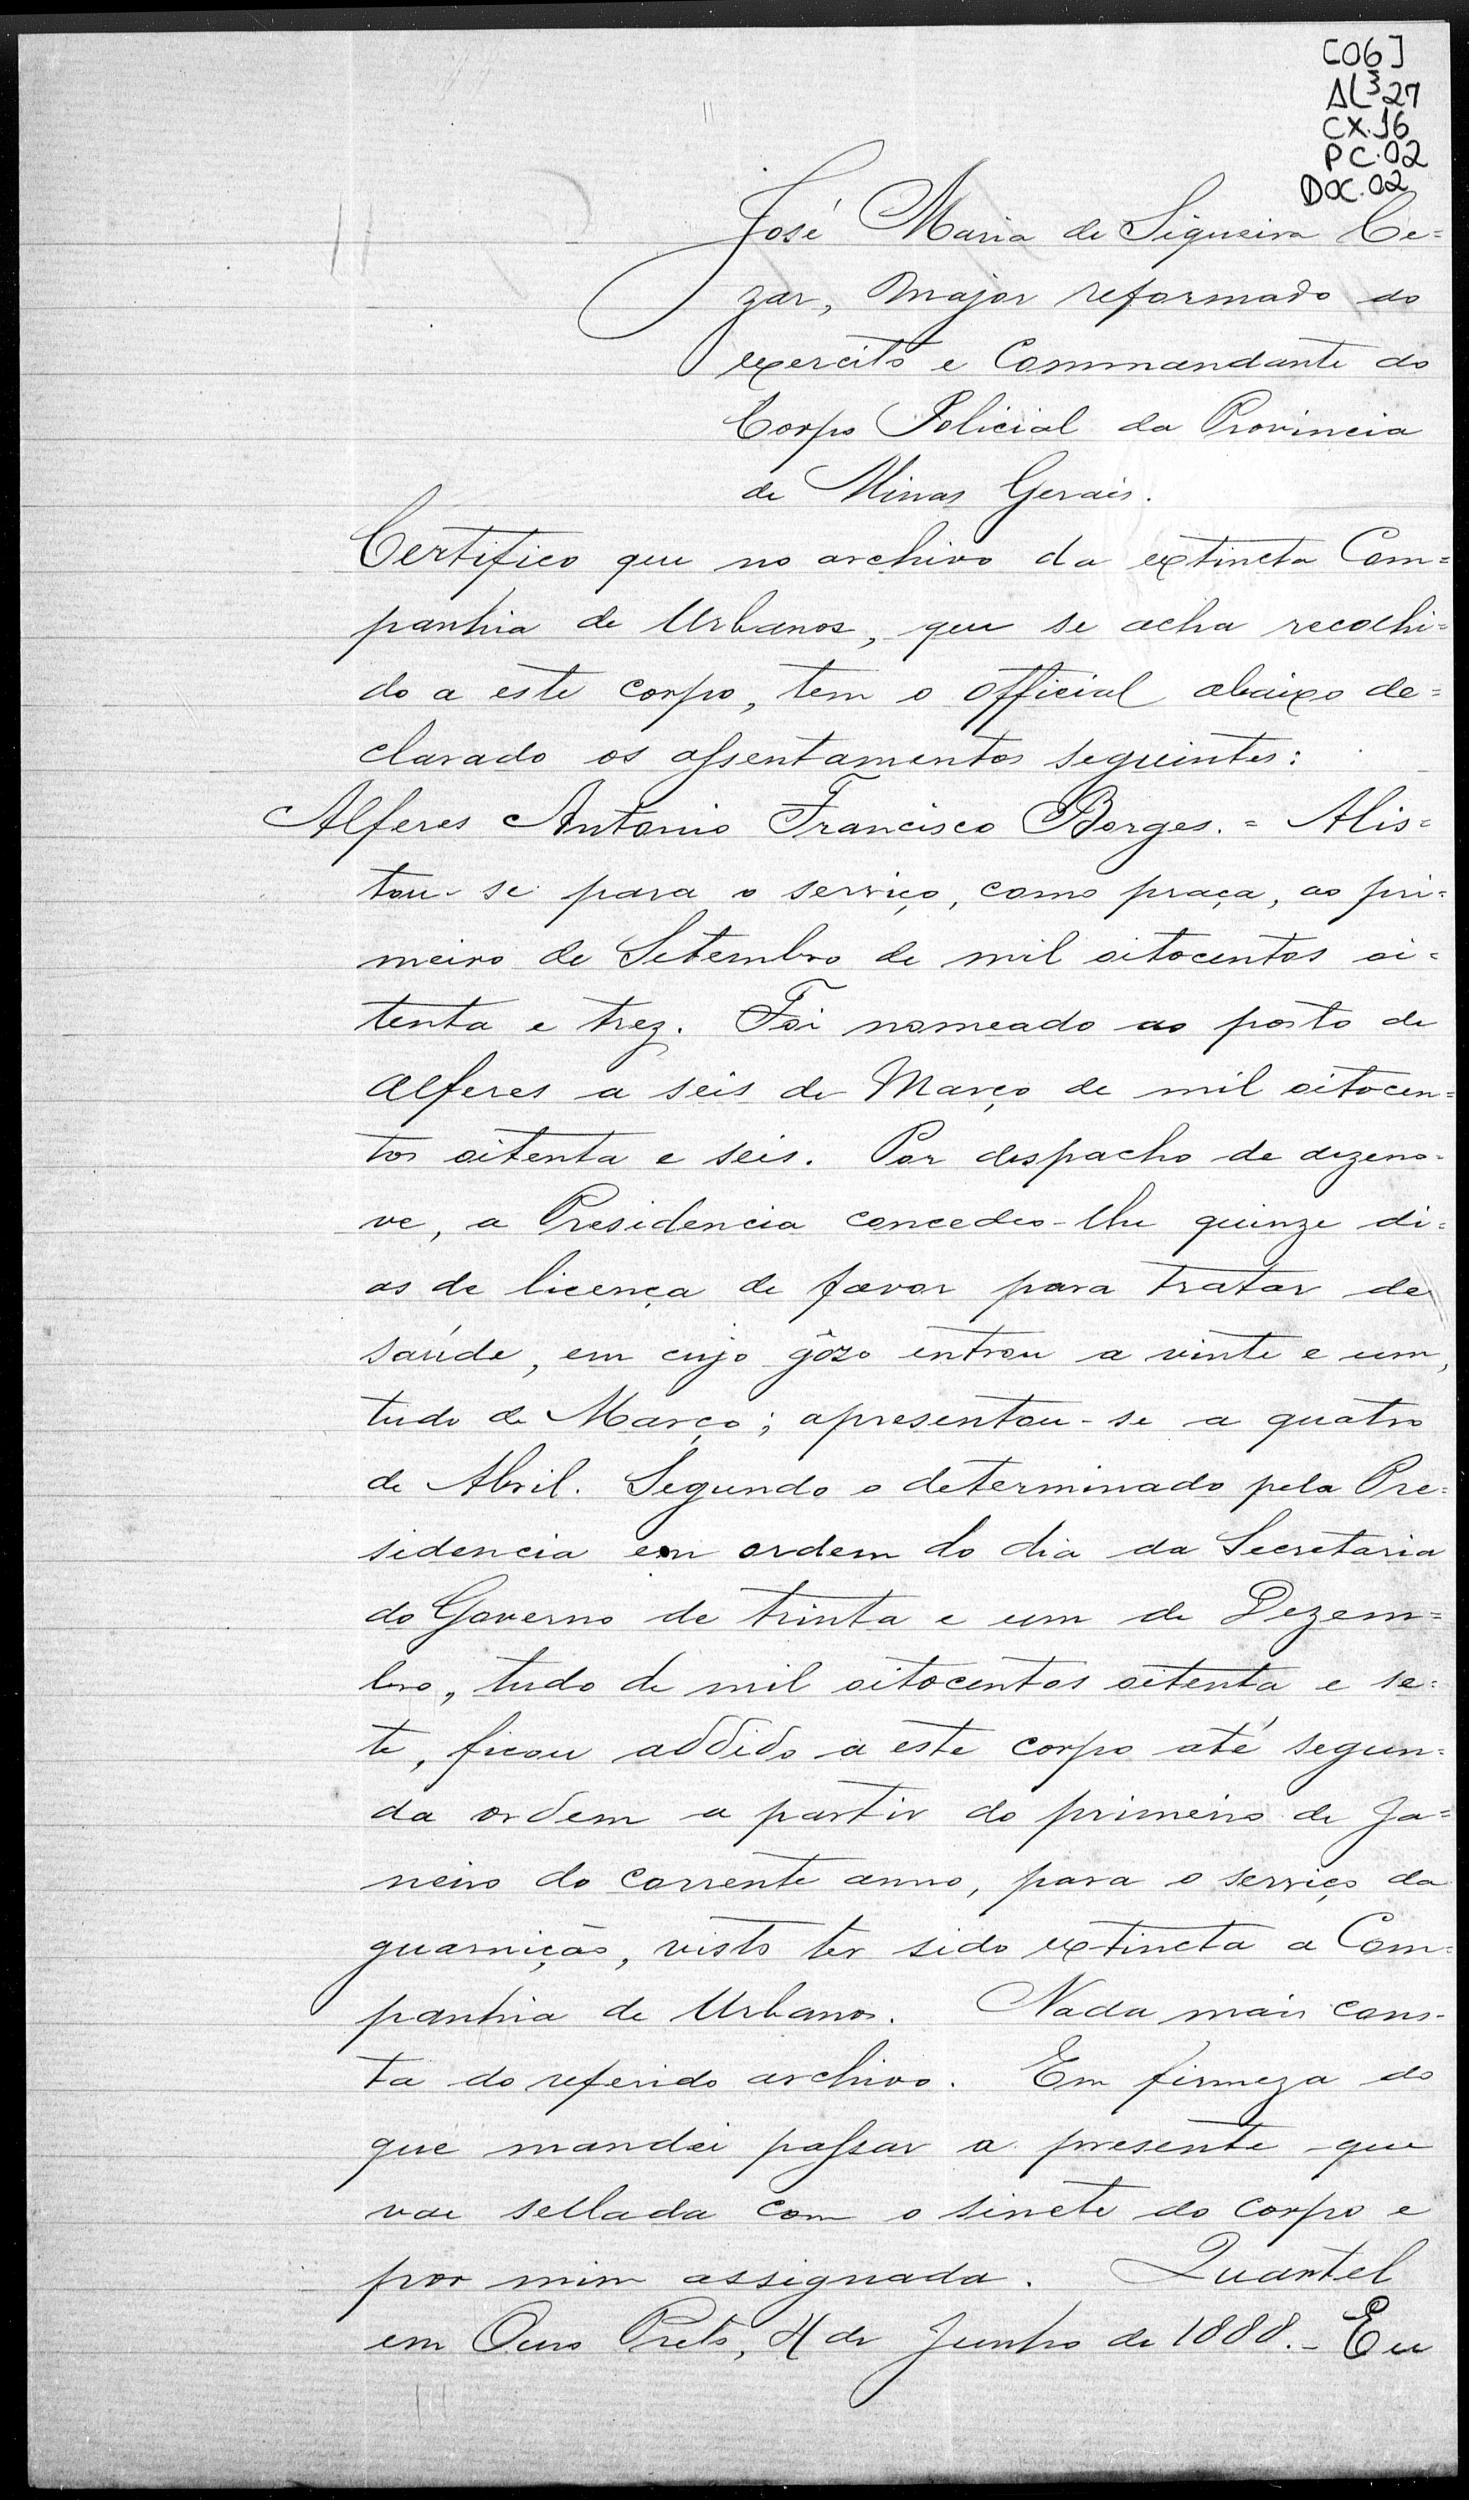 [06]
AL³ 27
CX.16
PC.02
DOC.02
José Maria de Siqueira Ce=
zar, Major reformado do
exercito e Commandante do
Corpo Policial da Provincia
de Minas Geraes.
Certifico que no archivo da extincta Com=
panhia de Urbanos, que se acha recolhi=
do a este corpo, tem o official abaixo de=
clarado os assentamentos seguintes:
Alferes Antonio Francisco Borges. = Alis=
tou-se para o serviço, como praça, ao pri=
meiro de Setembro de mil oitocentos oi=
tenta e trez. Foi nomeado ao posto de
Alferes a seis de Março de mil oitocen=
tos oitenta e seis. Por despacho de dezeno-
ve, a Presidencia concedeo-lhe quinze di=
as de licença de favor para tratar de
saúde, em cujo gôzo entrou a vinte e um,
tudo de Março; apresentou-se a quatro
de Abril. Segundo o determinado pela Pre=
sidencia em ordem do dia da Secretaria
do Governo de trinta e um de Dezem=
bro, tudo de mil oitocentos oitenta e se=
te, ficou addido a este corpo até segun=
da ordem a partir do primeiro de Ja=
neiro do corrente anno, para o serviço da
guarnição, visto ter sido extincta a Com=
panhia de Urbanos. Nada mais cons-
ta do referido archivo. Em firmeza do
que mandei passar a presente que
vae sellada com o sinete do corpo e
por mim assignada. Quartel
em Ouro Preto, 4 de Junho de 1888. - Eu